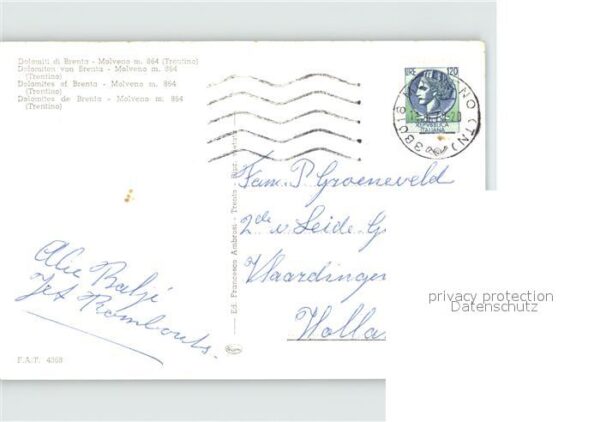 Dolomiti di Brenta - Molveno m. 864 (Trentino)
Dolomiten von Brenta - Molveno m. 864
(Trentino)
Dolomites of Brenta - Molveno m. 864
(Trentino)
Dolomites de Brenta - Molveno m. 864
(Trentino)
LIRE 120
REPUBBLICA
ITALIANA
38018 NO (TN)
Fam. P. Groeneveld
2de v. Leide G
Vlaardingen
Holla
Alie Baljé
Jet Rombouts.
Ed. Francesco Ambrosi - Trento - Ripr. vietata
F.A.T. 4368
privacy protection
Datenschutz